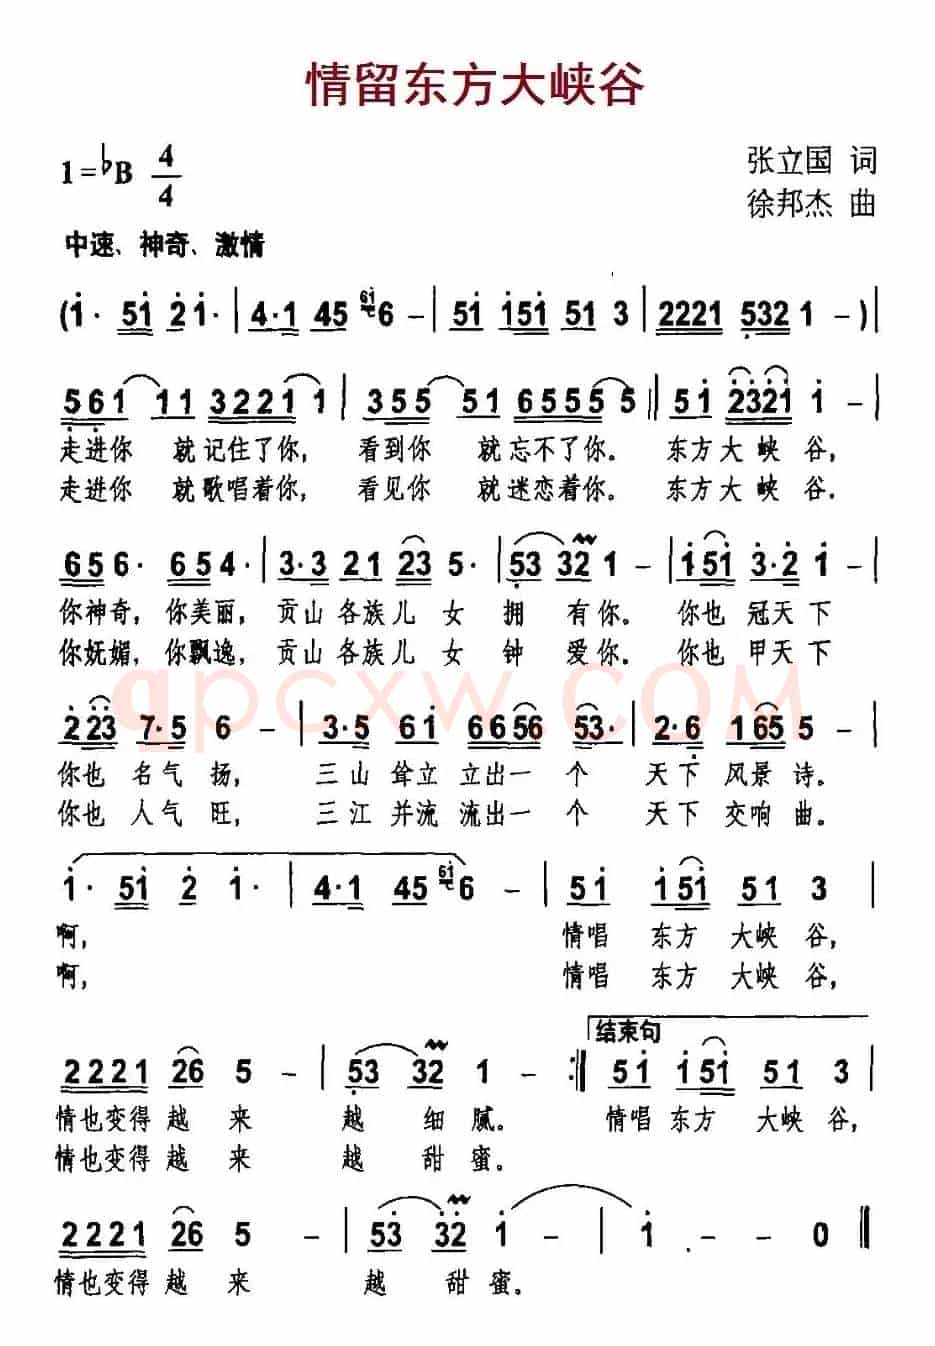 情留东方大峡谷
1=♭B 4/4
张立国 词
徐邦杰 曲
中速、神奇、激情
(1· 51 21· | 4·1 45 61 6 – | 51 151 51 3 | 2221 532 1 – )|
561 11 3221 1 | 355 51 6555 5 || 51 2321 1 – |
走进你 就记住了你, 看到你 就忘不了你。 东方大峡谷,
走进你 就歌唱着你, 看见你 就迷恋着你。 东方大峡谷.
656· 654· | 3·3 21 23 5· | 53 32 1 – | 151 3·2 1 – |
你神奇, 你美丽, 贡山各族儿女 拥有你. 你也冠天下
你妩媚, 你飘逸, 贡山各族儿女 钟爱你. 你也甲天下
qpcxw.COM
223 7·5 6 – | 3·5 61 6656 53· | 2·6 165 5 – |
你也名气扬, 三山耸立立出一个 天下风景诗.
你也人气旺, 三江并流流出一个 天下交响曲。
1· 51 2 1· | 4·1 45 61 6 – | 51 151 51 3 |
啊, 情唱 东方 大峡谷,
啊, 情唱 东方 大峡谷,
结束句
2221 26 5 – | 53 32 1 – :|| 51 151 51 3 |
情也变得越来 越细腻. 情唱东方 大峡谷,
情也变得越来 越甜蜜.
2221 26 5 – | 53 32 1 – | 1 – – 0 ||
情也变得越来 越甜蜜.